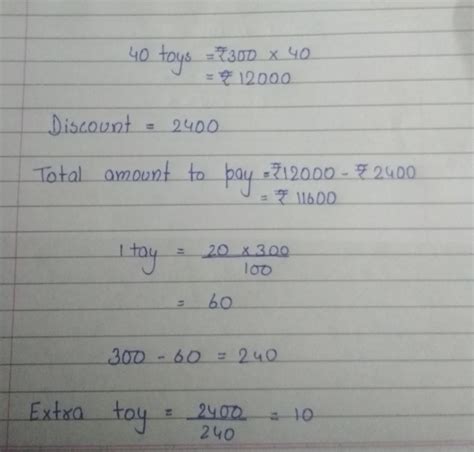 40 toys = ₹300 × 40
= ₹ 12000
Discount = 2400
Total amount to pay = ₹12000 - ₹ 2400
= ₹ 11600
1 toy = 20 × 300 / 100
= 60
300 - 60 = 240
Extra toy = 2400 / 240 = 10